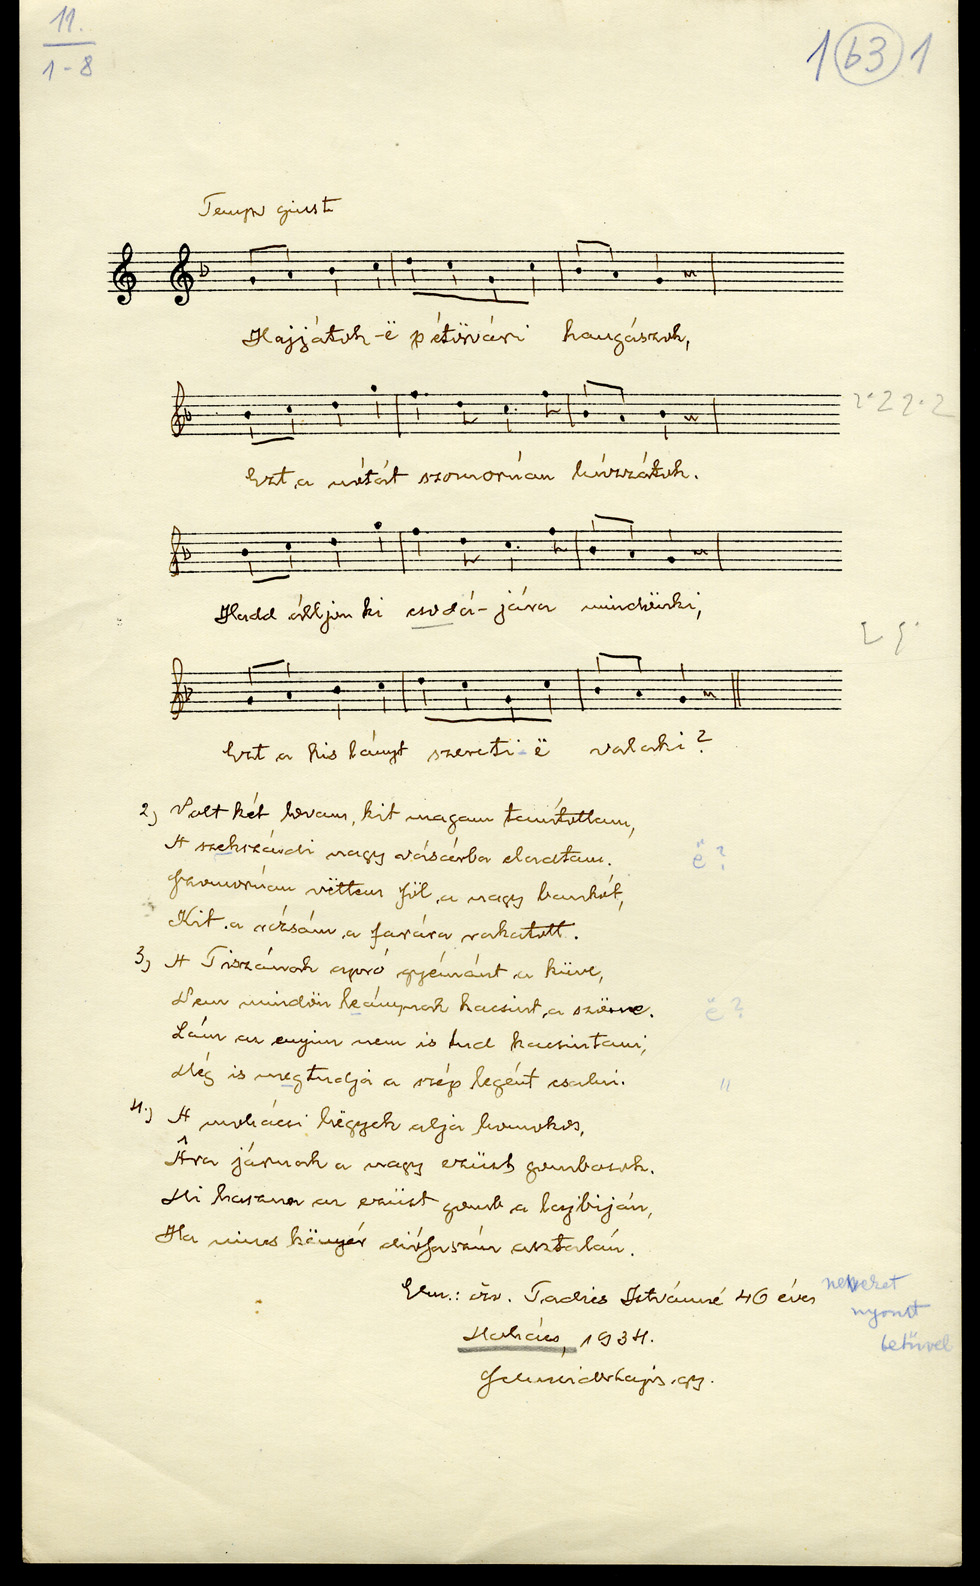 11.
1-8
1 63 1
Tempo giusto
Hajjátok-ë pétörvári
Ezt a nótát szomorúan húzzátok.
Hadd álljon ki csodá-jára mindënki,
Ezt a kis lányt szereti-ë valaki?
2) Volt két lovam, kit magam tanítottam,
A szekszárdi nagy vásárba eladtam.
ë?
Szomorúan vëttem föl a nagy bankót,
Kit a rózsám a farára rakatott.
3) A Tiszának apró gyémánt a küve,
Nem mindön leánynak kacsint a szëme.
ë?
Lám az enyim nem is tud kacsintani,
Még is megtudja a szép legént csalni.
"
4.) A mohácsi hëgyek alja homokos,
Âra járnak a nagy ezüst gombosok.
Mi haszna az ezüst gomb a lajbiján,
Ha nincs kënyér diófaszín asztalán.
Elm.: özv. Tadics Istvánné 46 éves
neveket
nyomt
betűvel
Mohács, 1934.
Schneider Lajos gy.